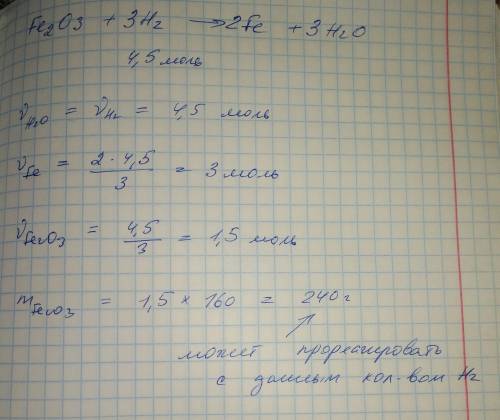 Fe₂O₃ + 3H₂ → 2Fe + 3H₂O
4,5 моль
ν_H₂O = ν_H₂ = 4,5 моль
ν_Fe = 2·4,5/3 = 3 моль
ν_Fe₂O₃ = 4,5/3 = 1,5 моль
m_Fe₂O₃ = 1,5 × 160 = 240 г
может прореагировать
с данным кол-вом H₂